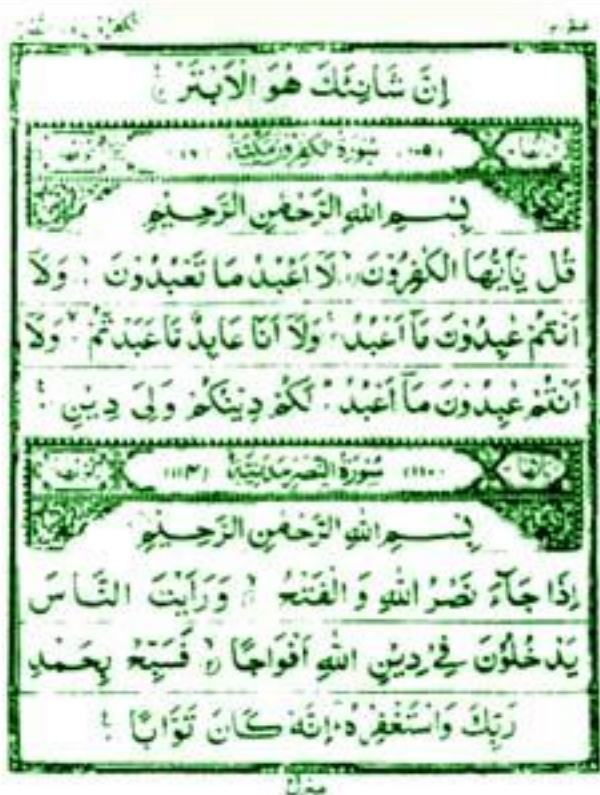 اِنَّ شَانِئَكَ هُوَ الْاَبْتَرُ
سُوْرَةُ الْكٰفِرُوْنَ مَكِّيَّةٌ
بِسْمِ اللهِ الرَّحْمٰنِ الرَّحِيْمِ
قُلْ يٰۤاَيُّهَا الْكٰفِرُوْنَ لَاۤ اَعْبُدُ مَا تَعْبُدُوْنَ وَلَاۤ
اَنْتُمْ عٰبِدُوْنَ مَاۤ اَعْبُدُ وَلَاۤ اَنَا عَابِدٌ مَّا عَبَدْتُّمْ وَلَاۤ
اَنْتُمْ عٰبِدُوْنَ مَاۤ اَعْبُدُ لَكُمْ دِيْنُكُمْ وَلِيَ دِيْنِ
سُوْرَةُ النَّصْرِ مَدَنِيَّةٌ (١١٠) (١١٤)
بِسْمِ اللهِ الرَّحْمٰنِ الرَّحِيْمِ
اِذَا جَآءَ نَصْرُ اللهِ وَالْفَتْحُ وَرَاَيْتَ النَّاسَ
يَدْخُلُوْنَ فِيْ دِيْنِ اللهِ اَفْوَاجًا فَسَبِّحْ بِحَمْدِ
رَبِّكَ وَاسْتَغْفِرْهُ اِنَّهٗ كَانَ تَوَّابًا